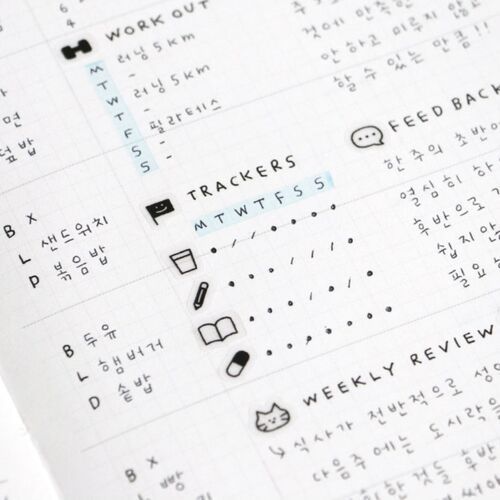 WORK OUT
M 러닝 5km
T -
W 러닝 5km
T -
F 필라테스
S -
S -
면
덮밥
것에 만족한
안 하고 미루지 않고
할 수 있는 만큼!!
FEED BACK
한 주의 초반에
열심히 하
후반으로
쉽지 않
필요
TRACKERS
M T W T F S S
B X
L 샌드위치
D 볶음밥
B 두유
L 햄버거
D 솥밥
B X
L 빵
WEEKLY REVIEW
↳ 식사가 전반적으로
다음주에는 도시락을
것들을 후반